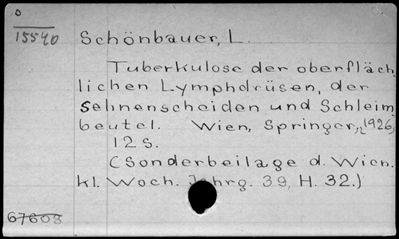 15540
Schönbauer, L.
Tuberkulose der oberfläch
lichen Lymphdrüsen, der
Sehnenscheiden und Schleim
beutel. Wien, Springer, 1926,
12 S.
(Sonderbeilage d. Wien.
kl. Woch. Jahrg. 39, H. 32.)
67608